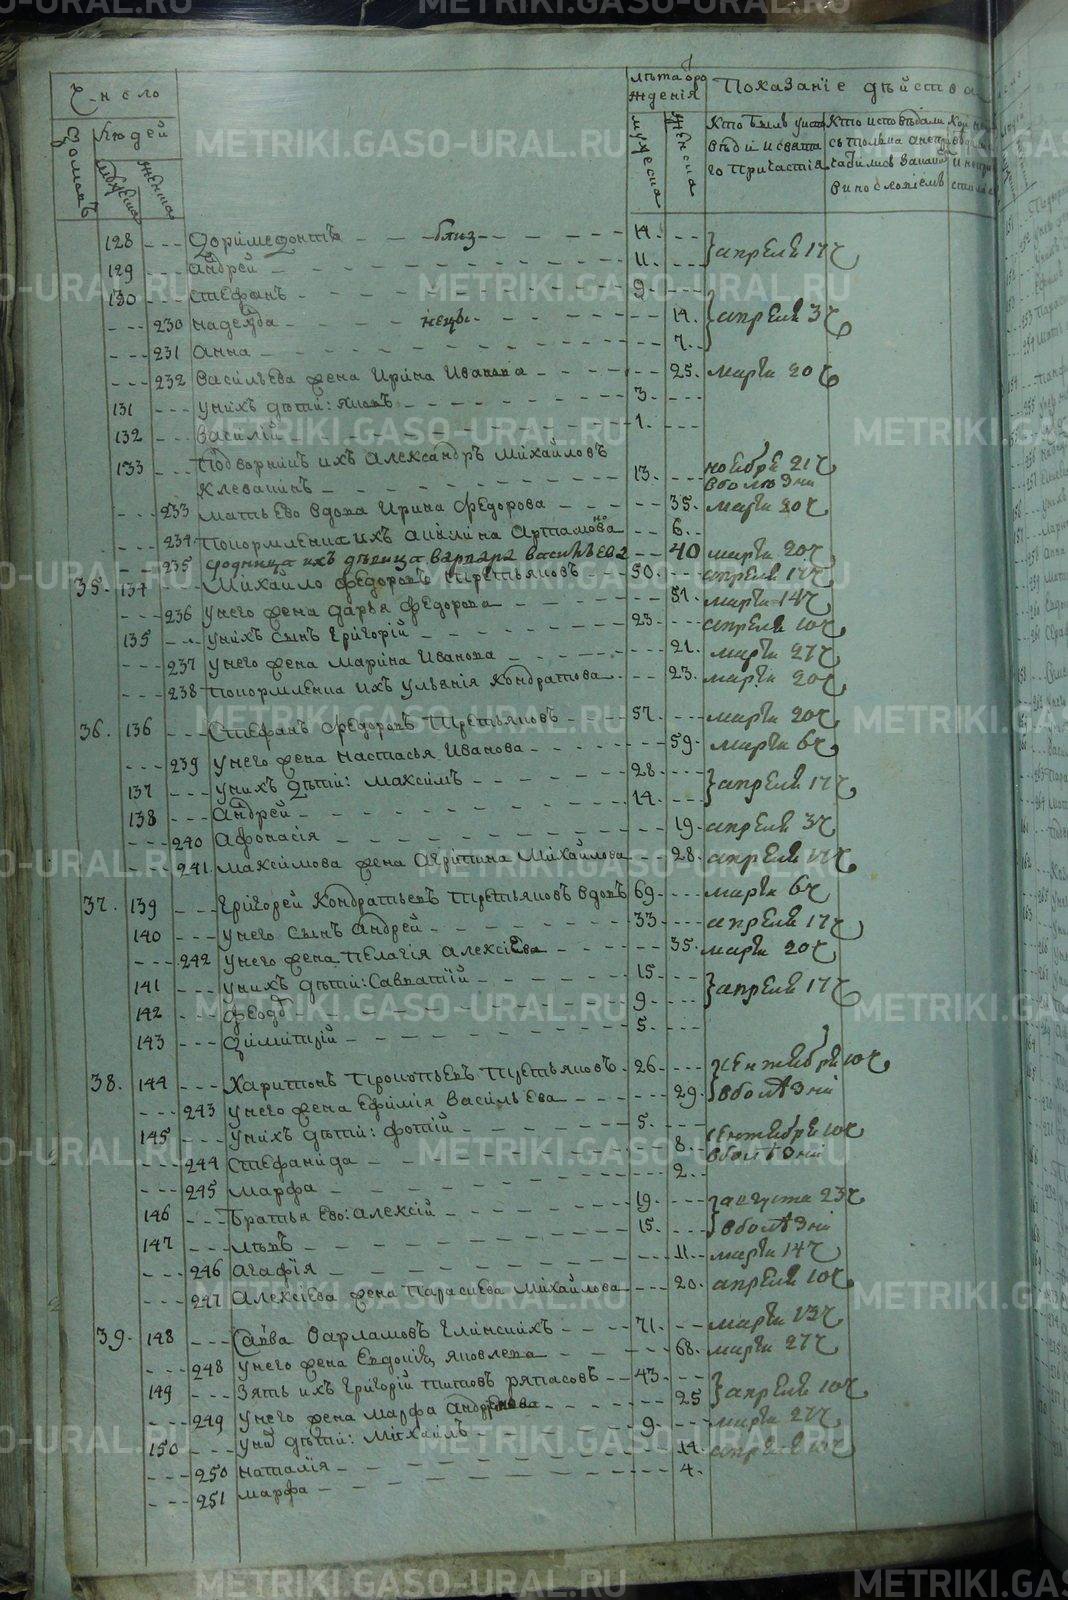 Число
лѣта рождения
Показанїе дѣйства
домовъ
людей
мужеска
женска
мужеска
женска
Кто былъ у испо
вѣди и свята
го причастїя
Кто исповѣдали
съ токмо а не при
частились за какимъ
винословїемъ
128 Доримедонтъ близ- 14. апреля 17ч
129 Андрей 11.
130 Стефанъ 9. апреля 3ч
230 Надежда нецы 14.
231 Анна 7.
232 Васильева жена Ирина Иванова 25. марта 20ч
131 у нихъ дѣти: Яковъ 3.
132 Василїй 1.
133 Подворникъ ихъ Александръ Михайловъ
Клевакинъ 13. ноября 21ч в болѣзни
233 мать ево вдова Ирина Федорова 35. марта 20ч
234 покормленка ихъ Акилина Артамонова 6.
235 сродница ихъ дѣвица варвара васильева 40 марта 20ч
35. 134 Михайло Федоровъ Третьяковъ 50. апреля 17ч
236 у него жена Дарья Федорова 51. марта 14ч
135 у нихъ сынъ Григорїй 23. апреля 10ч
237 у него жена Марина Иванова 21. марта 27ч
238 покормленка ихъ Ульянїя Кондратова 23. марта 20ч
36. 136 Стефанъ Федоровъ Третьяковъ 57. марта 20ч
239 у него жена Настасья Иванова 59. марта 6ч
137 у нихъ дѣти: Максимъ 28. апреля 17ч
138 Андрей 14.
240 Афонасїя 19. апреля 3ч
241 Максимова жена Акрипина Михайлова 28. апреля 17ч
37. 139 Григорей Кондратьевъ Третьяковъ вдовъ 69. марта 6ч
140 у него сынъ Андрей 33. апреля 17ч
242 у него жена Пелагїя Алексїева 35. марта 20ч
141 у нихъ дѣти: Савватїй 15. апреля 17ч
142 Феодоръ 9.
143 Димитрїй 5.
38. 144 Харитонъ Прокопьевъ Третьяковъ 26. сентября 10ч
243 у него жена Ефимїя Васильева 29. в болѣзни
145 у нихъ дѣти: Фотїй 5. сентября 10ч
244 Стефанида 8. в болѣзни
245 Марфа 2.
146 Братья ево: Алексїй 19. августа 23ч
147 Левъ 15. в болѣзни
246 Агафїя 11. марта 14ч
247 Алексїева жена Параскева Михайлова 20. апреля 10ч
39. 148 Савва Варламовъ Глинскихъ 71. марта 13ч
248 у него жена Евдокїя Яковлева 68. марта 27ч
149 Зять ихъ Григорїй Титовъ Рятасовъ 43. апреля 10ч
249 у него жена Марфа Андреева 25
150 у нихъ дѣти: Михайлъ 9. марта 27ч
250 Наталїя 14. апреля 10ч
251 Марфа 4.
METRIKI.GASO-URAL.RU